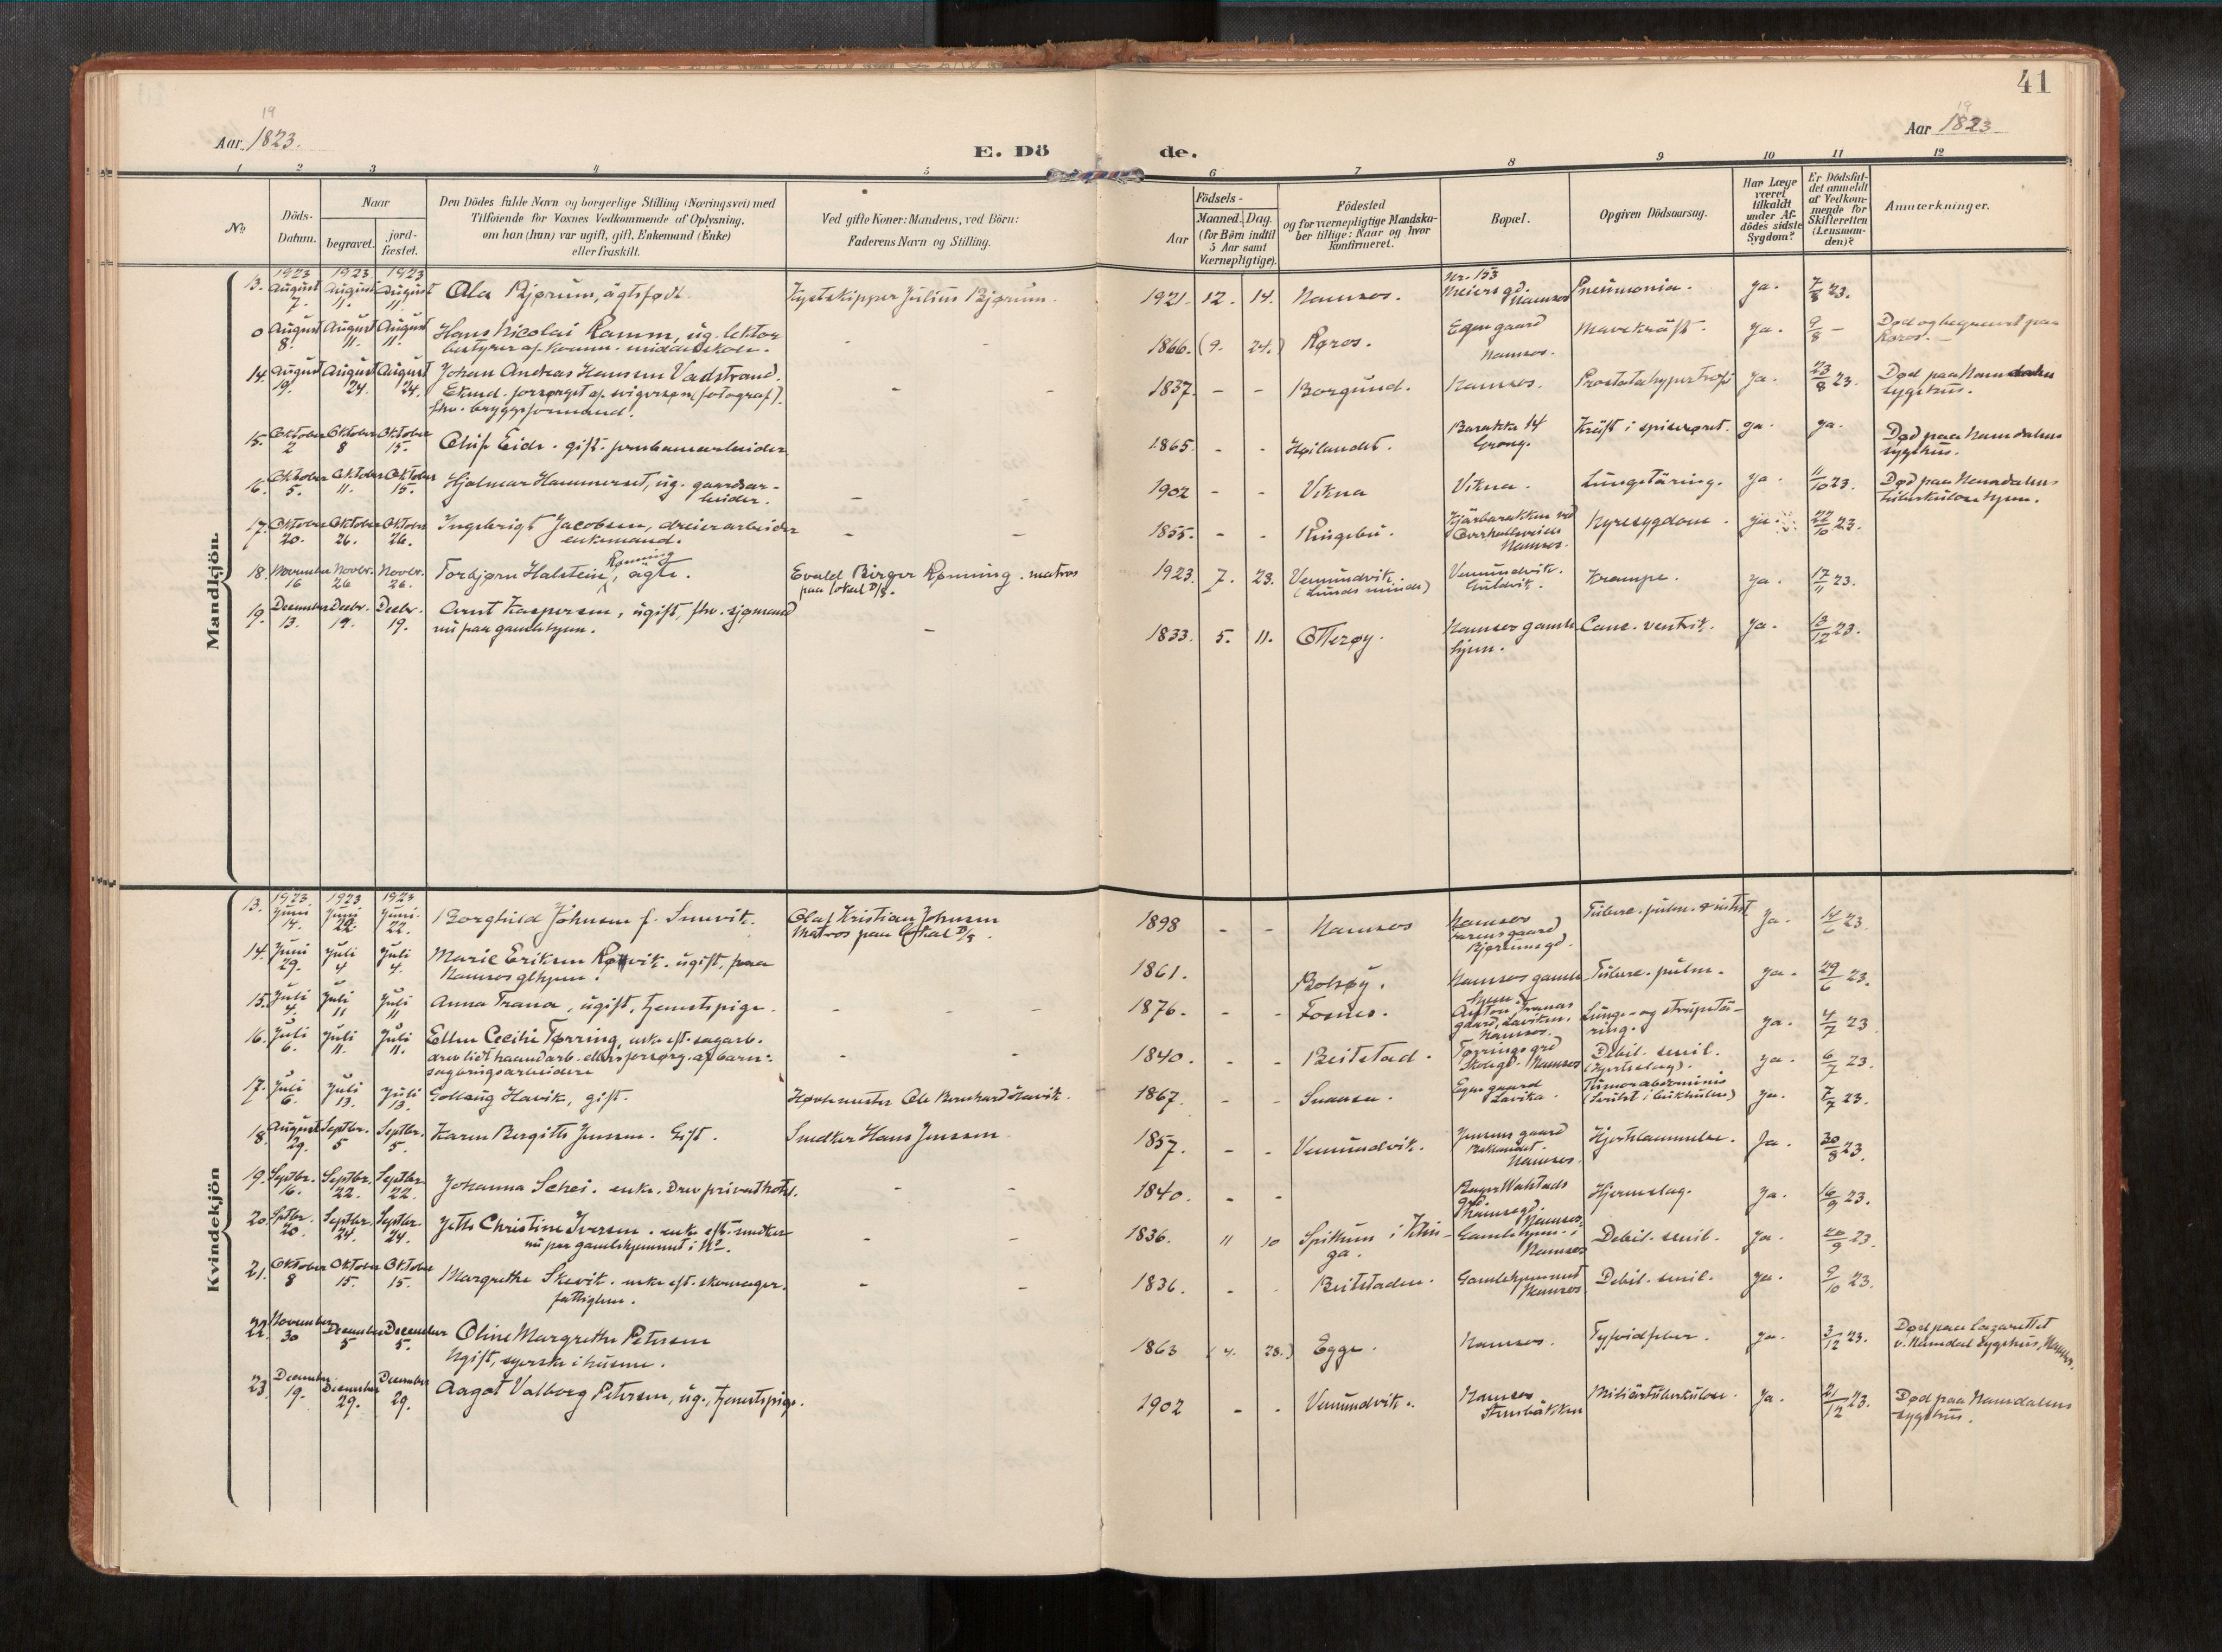 41
19
Aar 1823.
E. Dö
de.
19
Aar 1823
1 2 3 4 5 6 7 8 9 10 11 12
No
Döds-
Datum.
Naar
begravet.
jord-
fæstet.
Den Dödes fulde Navn og borgerlige Stilling (Næringsvei) med
Tilföiende for Voxnes Vedkommende af Oplysning,
om han (hun) var ugift, gift, Enkemand (Enke)
eller fraskilt.
Ved gifte Koner: Mandens, ved Börn:
Faderens Navn og Stilling.
Födsels-
Aar
Maaned. Dag.
(for Börn indtil
5 Aar samt
Værnepligtige).
Födested
og for værnepligtige Mandska-
ber tillige: Naar og hvor
konfirmeret.
Bopæl.
Opgiven Dödsaarsag.
Har Læge
været
tilkaldt
under Af-
dödes sidste
Sygdom?
Er Dödsfal-
det anmeldt
af Vedkom-
mende for
Skifteretten
(Lensman-
den)?
Anmærkninger.
Mandkjön.
1923 1923 1923
13. August 7. August 11. August 11. Ola Bjørum, ägtefødt. Kystskipper Julius Bjørum. 1921. 12. 14. Namsos. Nr. 153 Meiersgd. Namsos Pneumonia. ja. 7/8 23.
0 August 8. August 11. August 11. Hans Nicolai Ramm, ug. lektor
bestyrer af komm. middelskole. - - 1866. (9. 24.) Røros. Egen gaard Namsos. Mavekräft. ja. 9/8 - Død og begravet paa Røros.
14. August 19. August 24. August 24. Johan Andreas Hansen Vadstrand.
Ekmd. forsørget af svigersøn (fotograf).
fhv. bryggeformand. - - 1837. - - Borgund. Namsos. Prostatahypertrofi ja. 23/8 23. Død paa Namdalens sygehus.
15. Oktober 2 Oktober 8 Oktober 15. Oluf Eide. gift. jernbanearbeider 1865. - - Høilandet. Barakke 14 Grong. Kräft i spiserøret. ja. ja. Død paa Namdalens sygehus.
16. Oktober 5. Oktober 11. Oktober 15. Hjalmar Hammerset, ug. gaardsar-
beider. - - 1902 - - Vikna Vikna. Lungetäring. ja. 11/10 23. Død paa Namdalens tuberkulosehjem.
17. Oktober 20. Oktober 26. Oktober 26. Ingebrigt Jacobsen, dreierarbeider
enkemand. - - 1855. - - Ringebu. Overhallsveien Namsos. Nyresygdom. ja. 22/10 23.
18. November 16 Novbr. 26 Novbr. 26. Torbjørn Halstein Rønning, ägte. Evald Birger Rønning. matros
paa lokal D/S. 1923. 7. 23. Vemundvik. Vemundvik. Krampe. ja. 17/11 23.
19. December 13. Decbr. 19. Decbr. 19. Arnt Kaspersen, ugift, fhv. sjømand
nu paa gamlehjem. - 1833. 5. 11. Otterøy. Namsos gamle hjem. Canc. ventrik. ja. 13/12 23.
Kvindekjön
1923 1923 1923
13. Juni 14. Juni 22. Juni 22. Borghild Johnsen f. Smevik. Olaf Kristian Johnsen
Matros paa lokal D/S. 1898 - - Namsos Namsos Bjørumsgd. Tuberc. pulm. & intest. Ja. 14/6 23.
14. Juni 29. Juli 4 Juli 4. Marie Eriksen Rørvik. ugift, paa
Namsos glhjem. 1861. Bolsøy. Namsos gamle hjem. Tuberc. pulm. ja. 29/6 23.
15. Juli 4. Juli 11 Juli 11 Anna Trana, ugift, tjenestepige. - - - 1876. - - Fosnes. Anton Tranas gaard, Laviken, Namsos. Lunge- og strupetä-
ring. ja. 4/7 23
16. Juli 6. Juli 11. Juli 11. Ellen Cecilie Tørring, enke eft. sagarb.
drev lidt haandarb. ellers forsørg. af barn:
sagbrugsarbeidere - - 1840. - - Beitstad. Tørringsgrd Namsos Debil. senil. ja. 6/7 23.
17. Juli 6. Juli 13. Juli 13. Solaug Havik, gift. Havnemester Ole Bernhard Havik. 1867. - - Snaasen. Egen gaard Lavika. Tumor abdominis
(Svulst i bukhulen) ja. 7/7 23.
18. August 29. Septbr. 5 Septbr. 5. Karen Birgitte Jenssen. Gift. Smedker Hans Jenssen 1857. - - Vemundvik. Jensens gaard Namsos. Hjertelammelse. Ja. 30/8 23.
19. Septbr. 16. Septbr. 22. Septbr. 22. Johanna Schei. enke. Drev privathotel. - - 1840. - - Namsos. Hjerneslag. Ja. 16/9 23.
20. Septbr. 20. Septbr. 24. Septbr. 24. Jette Christine Iversen. enke eft. smedker
nu paa gamlehjemmet i Ns. - - 1836. 11 10 Spillum i Klin-
ga. Gamlehjem. i Namsos Debil. senil. ja. 20/9 23.
21. Oktober 8 Oktober 15. Oktober 15. Margrethe Skevik. enke eft. skomager.
fattiglem. - - 1836. - - Beitstaden. Gamlehjemmet Namsos Debil. senil. ja. 9/10 23.
22. November 30 December 5 December 5. Oline Margrethe Petersen
Ugift, syerske i husene. 1863 (4. 28.) Egge. Namsos. Tyfoidfeber. ja. 3/12 23. Død paa lazarettet
v. Namdal sygehus, Namsos.
23. December 19. December 29. December 29. Aagot Valborg Petersen, ug., tjenestepige. 1902 - - Vemundvik. Namsos Miliärtuberkulose. Ja. 21/12 23. Død paa Namdalens
sygehus.